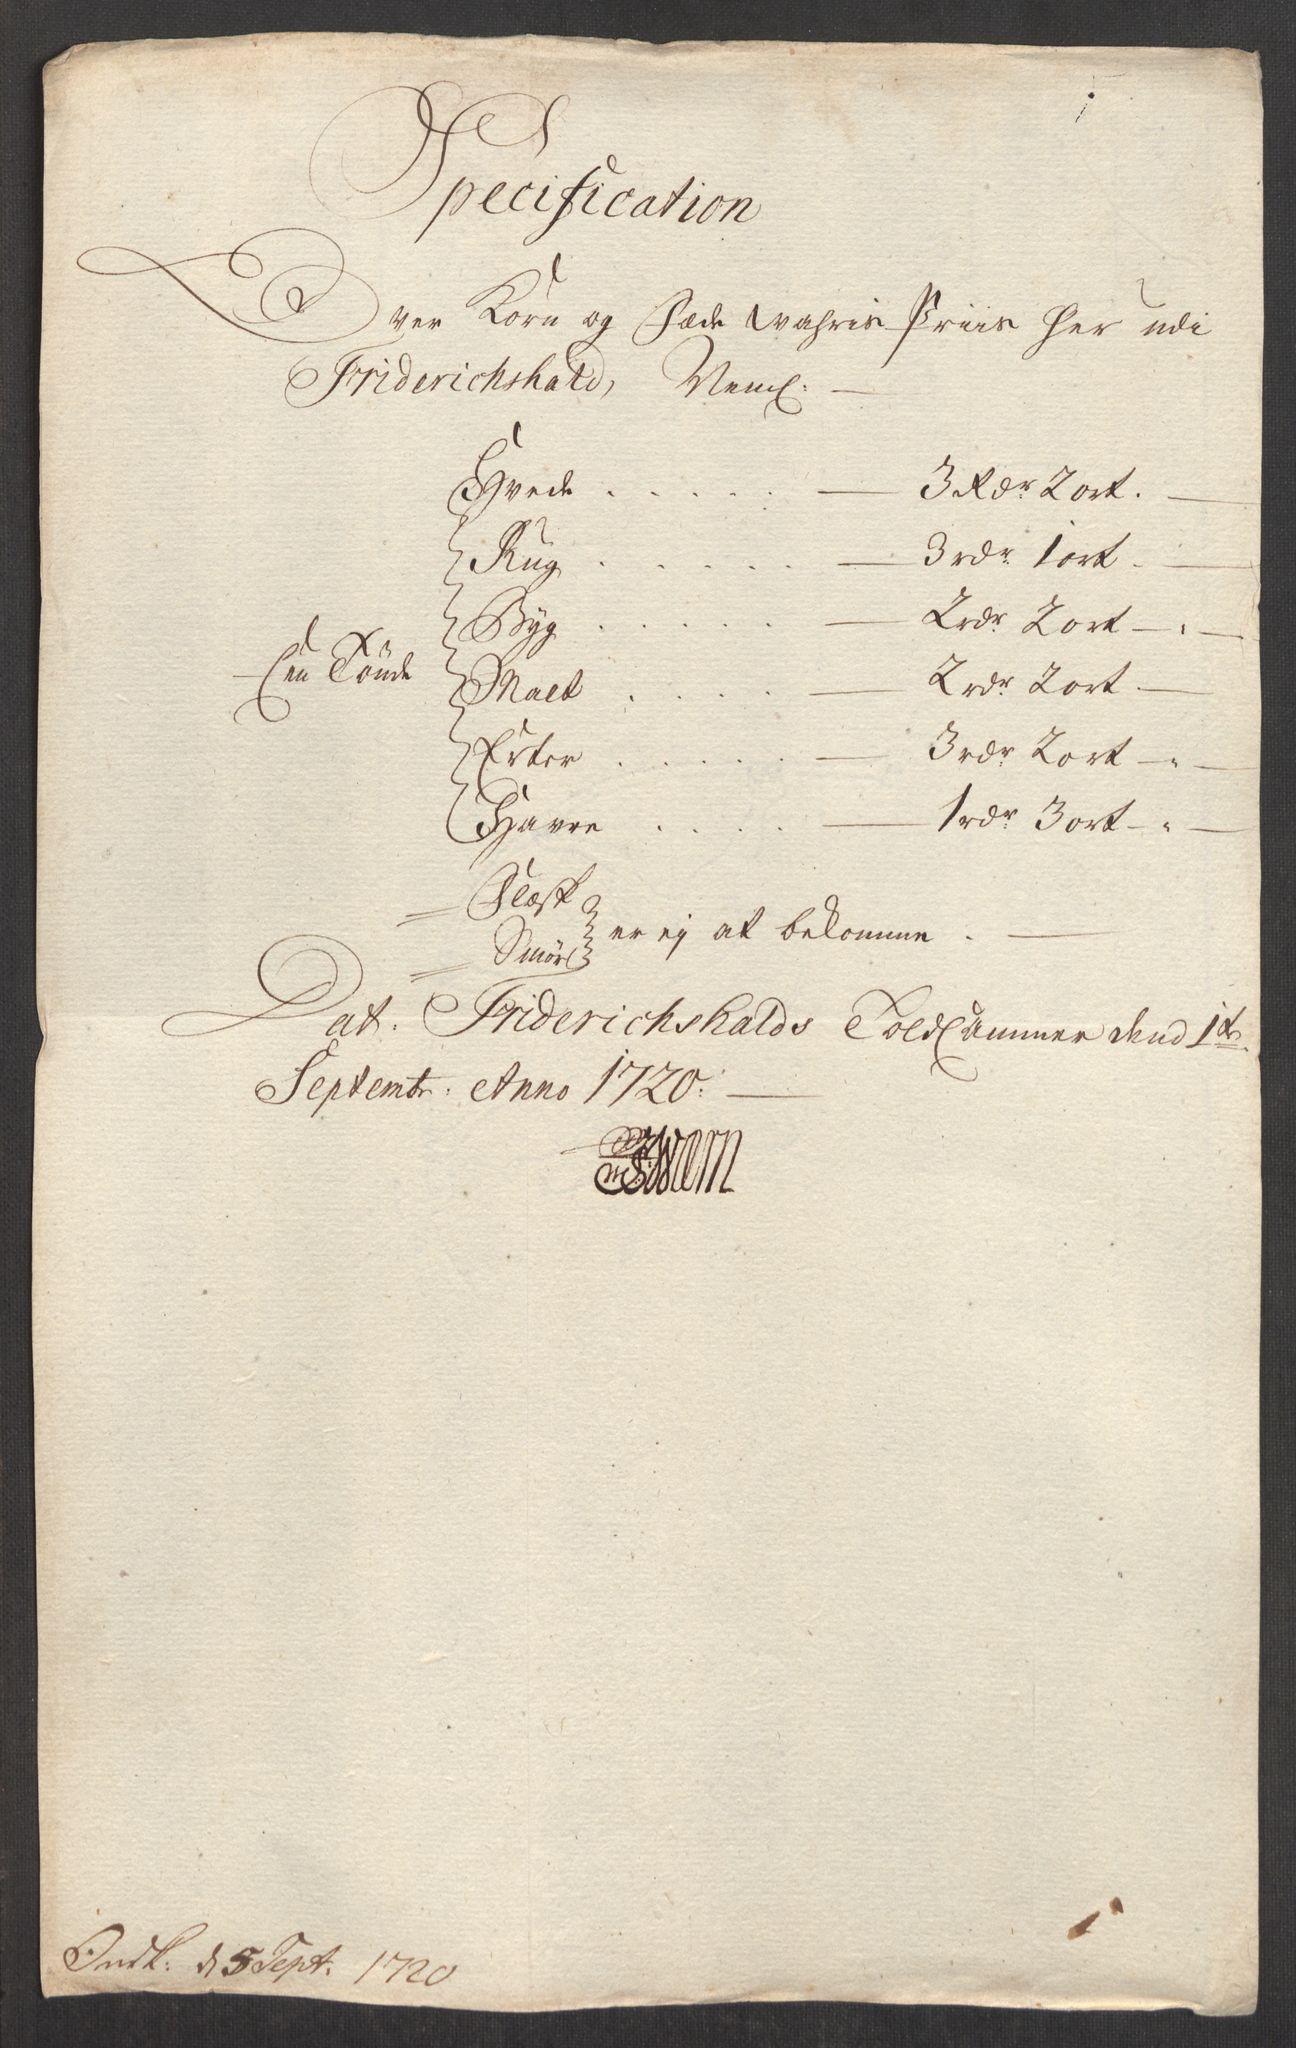 Specification
Over Korn og Fæde wahris Priis her udi
Friderichshald, Neml:
Hvede . . . . . — 3 Rdr 2 ort. —
Rug . . . . . — 3 rdr 1 ort. —
Byg . . . . . — 2 rdr 2 ort — " —
En Tönde
Malt . . . . — 2 rdr 2 ort —
Erter . . . . . — 3 rdr 2 ort — " —
Havre . . . . — 1 rdr 3 ort — " —
Flæsk
er ej at bekomme . —
Smör
Dat. Friderichshalds ToldCammer dend 1te
Septembr: Anno 1720: —
Indk: d 5 Sept. 1720